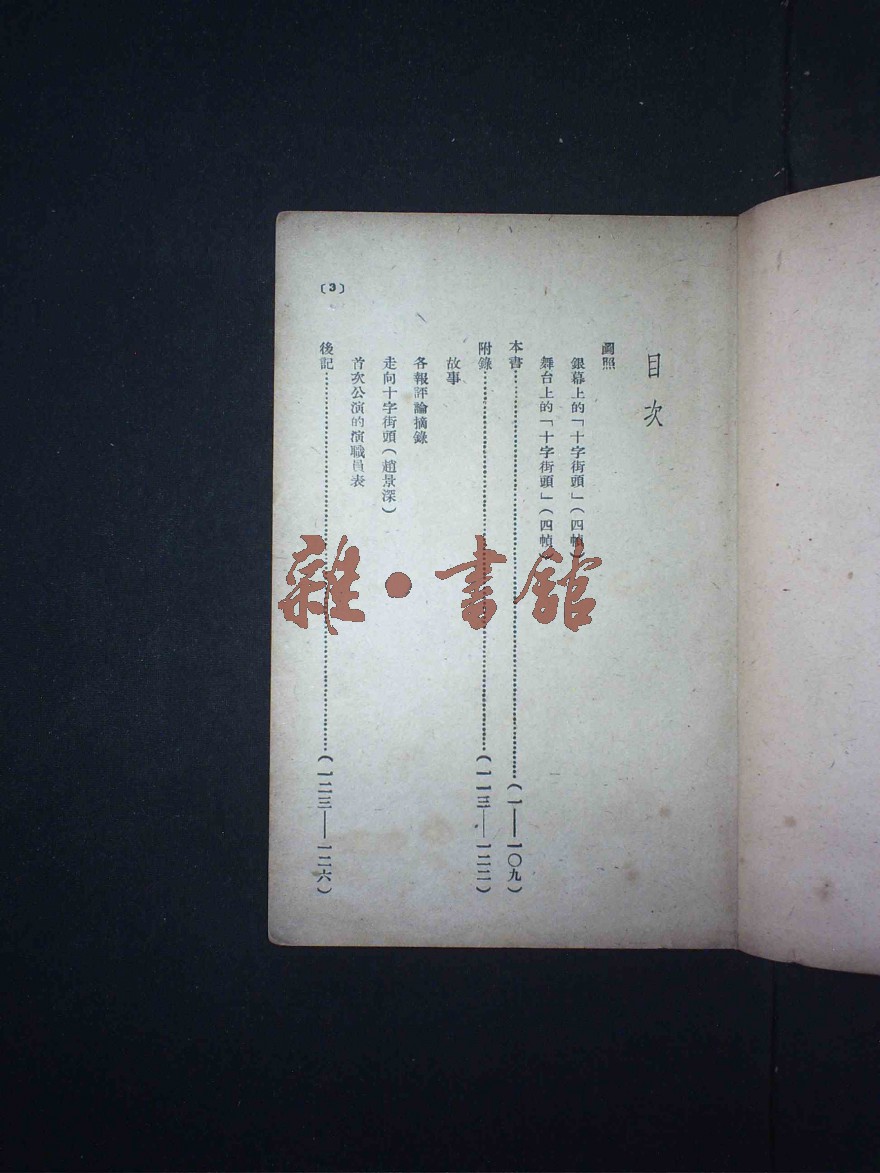 目次
圖照
銀幕上的「十字街頭」(四幀)
舞台上的「十字街頭」(四幀)
本書……(一——一〇九)
附錄……(一一三——一二二)
故事
各報評論摘錄
走向十字街頭(趙景深)
首次公演的演職員表
後記……(一二三——一二六)
〔3〕
雜·書館